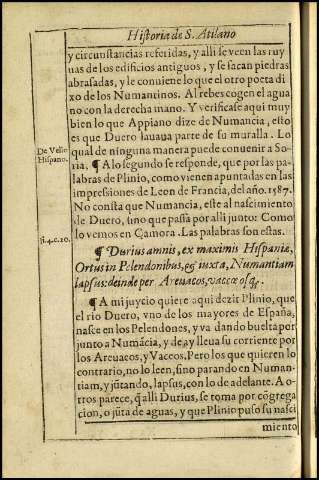 Historia de S. Atilano
y circunstancias referidas, y alli se veen las ruy
nas de los edificios antiguos, y se sacan piedras
abrasadas, y le conuiene lo que el otro poeta di
xo de los Numantinos. Al rebes cogen el agua,
no con la derecha mano. Y verificase aqui muy
bien lo que Appiano dize de Numancia, esto
es que Duero lauaua parte de su muralla. Lo
De Vello
Hispano.
qual de ninguna manera puede conuenir a So-
ria. ¶ A lo segundo se responde, que por las pa-
labras de Plinio, como vienen apuntadas en las
impressiones de Leon de Francia, del año. 1587.
No consta que Numancia, este al nascimiento
de Duero, sino que passa por alli junto: Como
lo vemos en Çamora. Las palabras son estas.
li.4.c.20.
¶ Durius amnis, ex maximis Hispaniæ,
Ortus in Pelendonibus, & iuxta, Numantiam
lapsus: deinde per Areuacos, vaccæosq;.
¶ A mi juycio quiere aqui dezir Plinio, que
el rio Duero, vno de los mayores de España,
nasce en los Pelendones, y va dando buelta por
junto a Numãcia, y de ay lleua su corriente por
los Areuacos, y Vacceos, Pero los que quieren lo
contrario, no lo leen, sino parando en Numan-
tiam, y jũtando, lapsus, con lo de adelante. A o-
tros parece, q̃ alli Durius, se toma por cõgrega
cion, o jũta de aguas, y que Plinio puso su nasci
miento